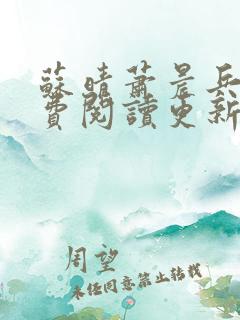 蘇晴蕭晨兵
費閱讀更新
周望
未经同意禁止转载